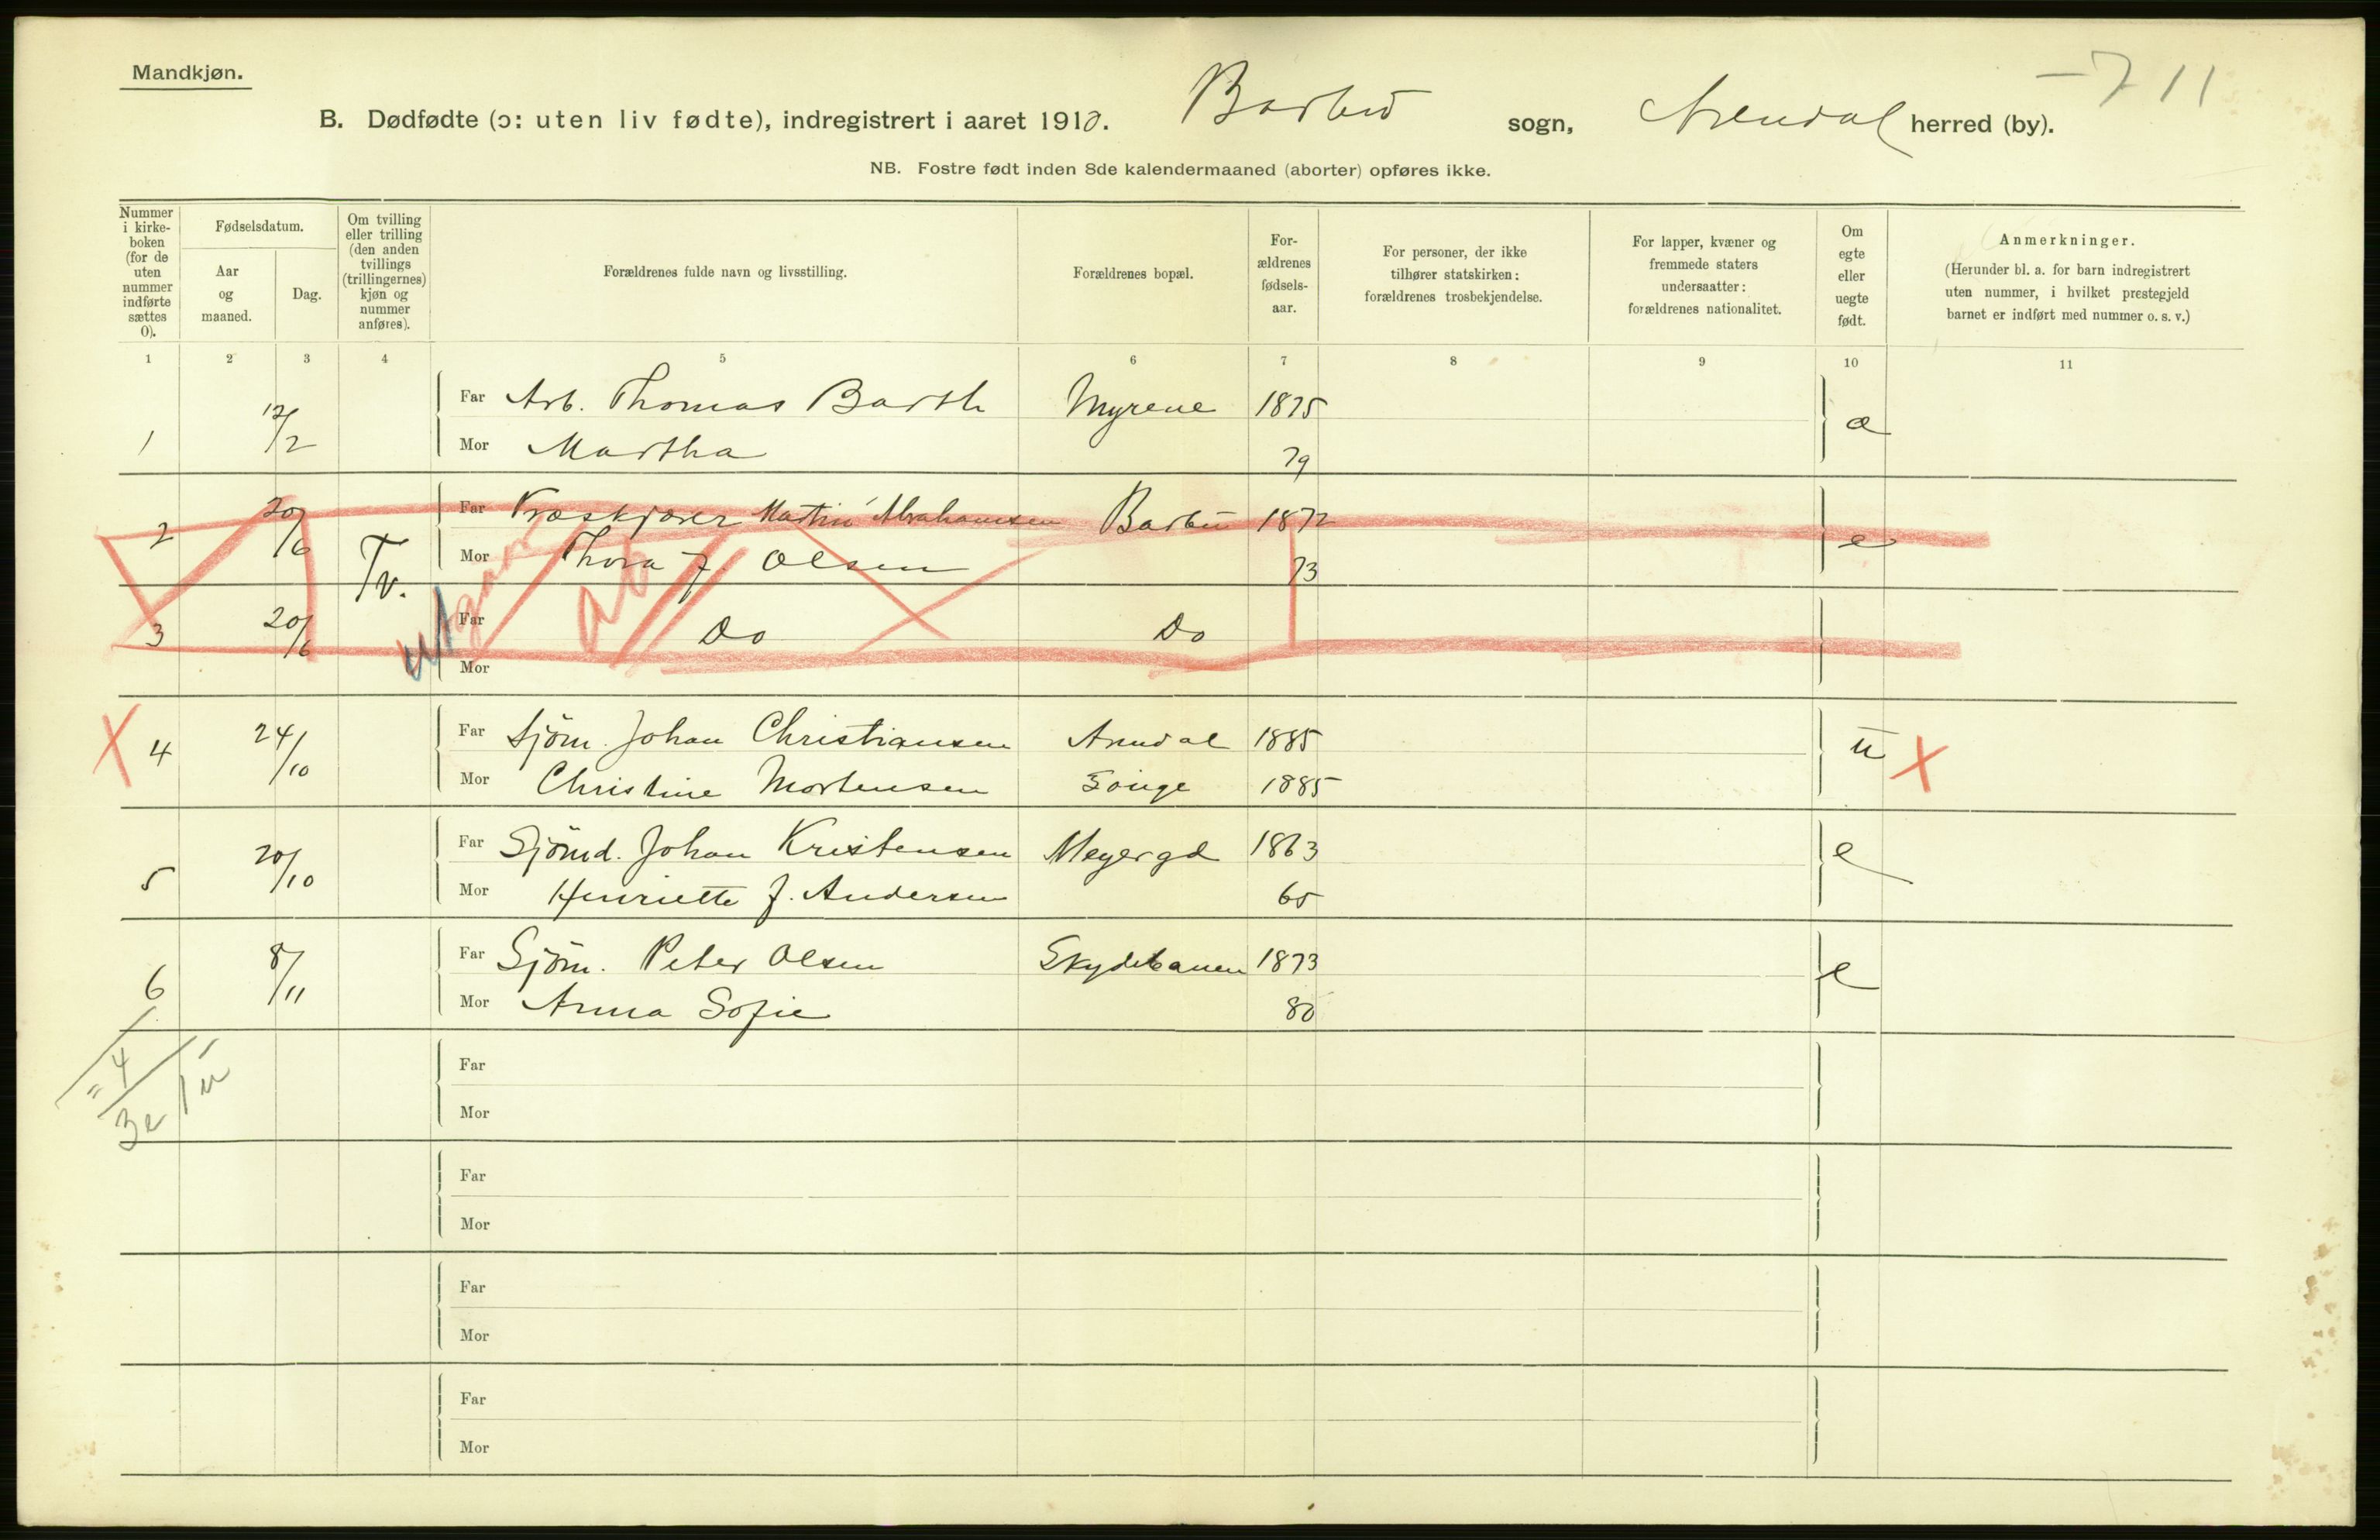 Mandkjøn.
-711
B. Dødfødte (ɔ: uten liv fødte), indregistrert i aaret 1910. Barbu sogn, Arendal herred (by).
NB. Fostre født inden 8de kalendermaaned (aborter) opføres ikke.
Nummer i kirke-boken (for de uten nummer indførte sættes 0).
Fødselsdatum.
Aar og maaned.
Dag.
Om tvilling eller trilling (den anden tvillings (trillingernes) kjøn og nummer anføres).
Forældrenes fulde navn og livsstilling.
Forældrenes bopæl.
For-ældrenes fødsels-aar.
For personer, der ikke tilhører statskirken: forældrenes trosbekjendelse.
For lapper, kvæner og fremmede staters undersaatter: forældrenes nationalitet.
Om egte eller uegte født.
Anmerkninger.
(Herunder bl. a. for barn indregistrert uten nummer, i hvilket prestegjeld barnet er indført med nummer o. s. v.)
1 2 3 4 5 6 7 8 9 10 11
1 12/2 Far Arb. Thomas Barth Myrene 1875 e
Mor Martha 79
2 20/6 Tv. Far Træskjærer Martin Abrahamsen Barbu 1872 e
Mor Thora J. Olsen 73
3 20/6 Far Do Do
Mor
X 4 24/10 Far Sjöm. Johan Christiansen Arendal 1885 u X
Mor Christine Mortensen Songe 1885
5 20/10 Far Sjömd. Johan Kristensen Meyergd 1863 e
Mor Henriette J. Andersen 65
6 8/11 Far Sjöm. Peter Olsen Skydebanen 1873 e
Mor Anna Sofie 80
= 4
3e 1u
Far
Mor
Far
Mor
Far
Mor
Far
Mor